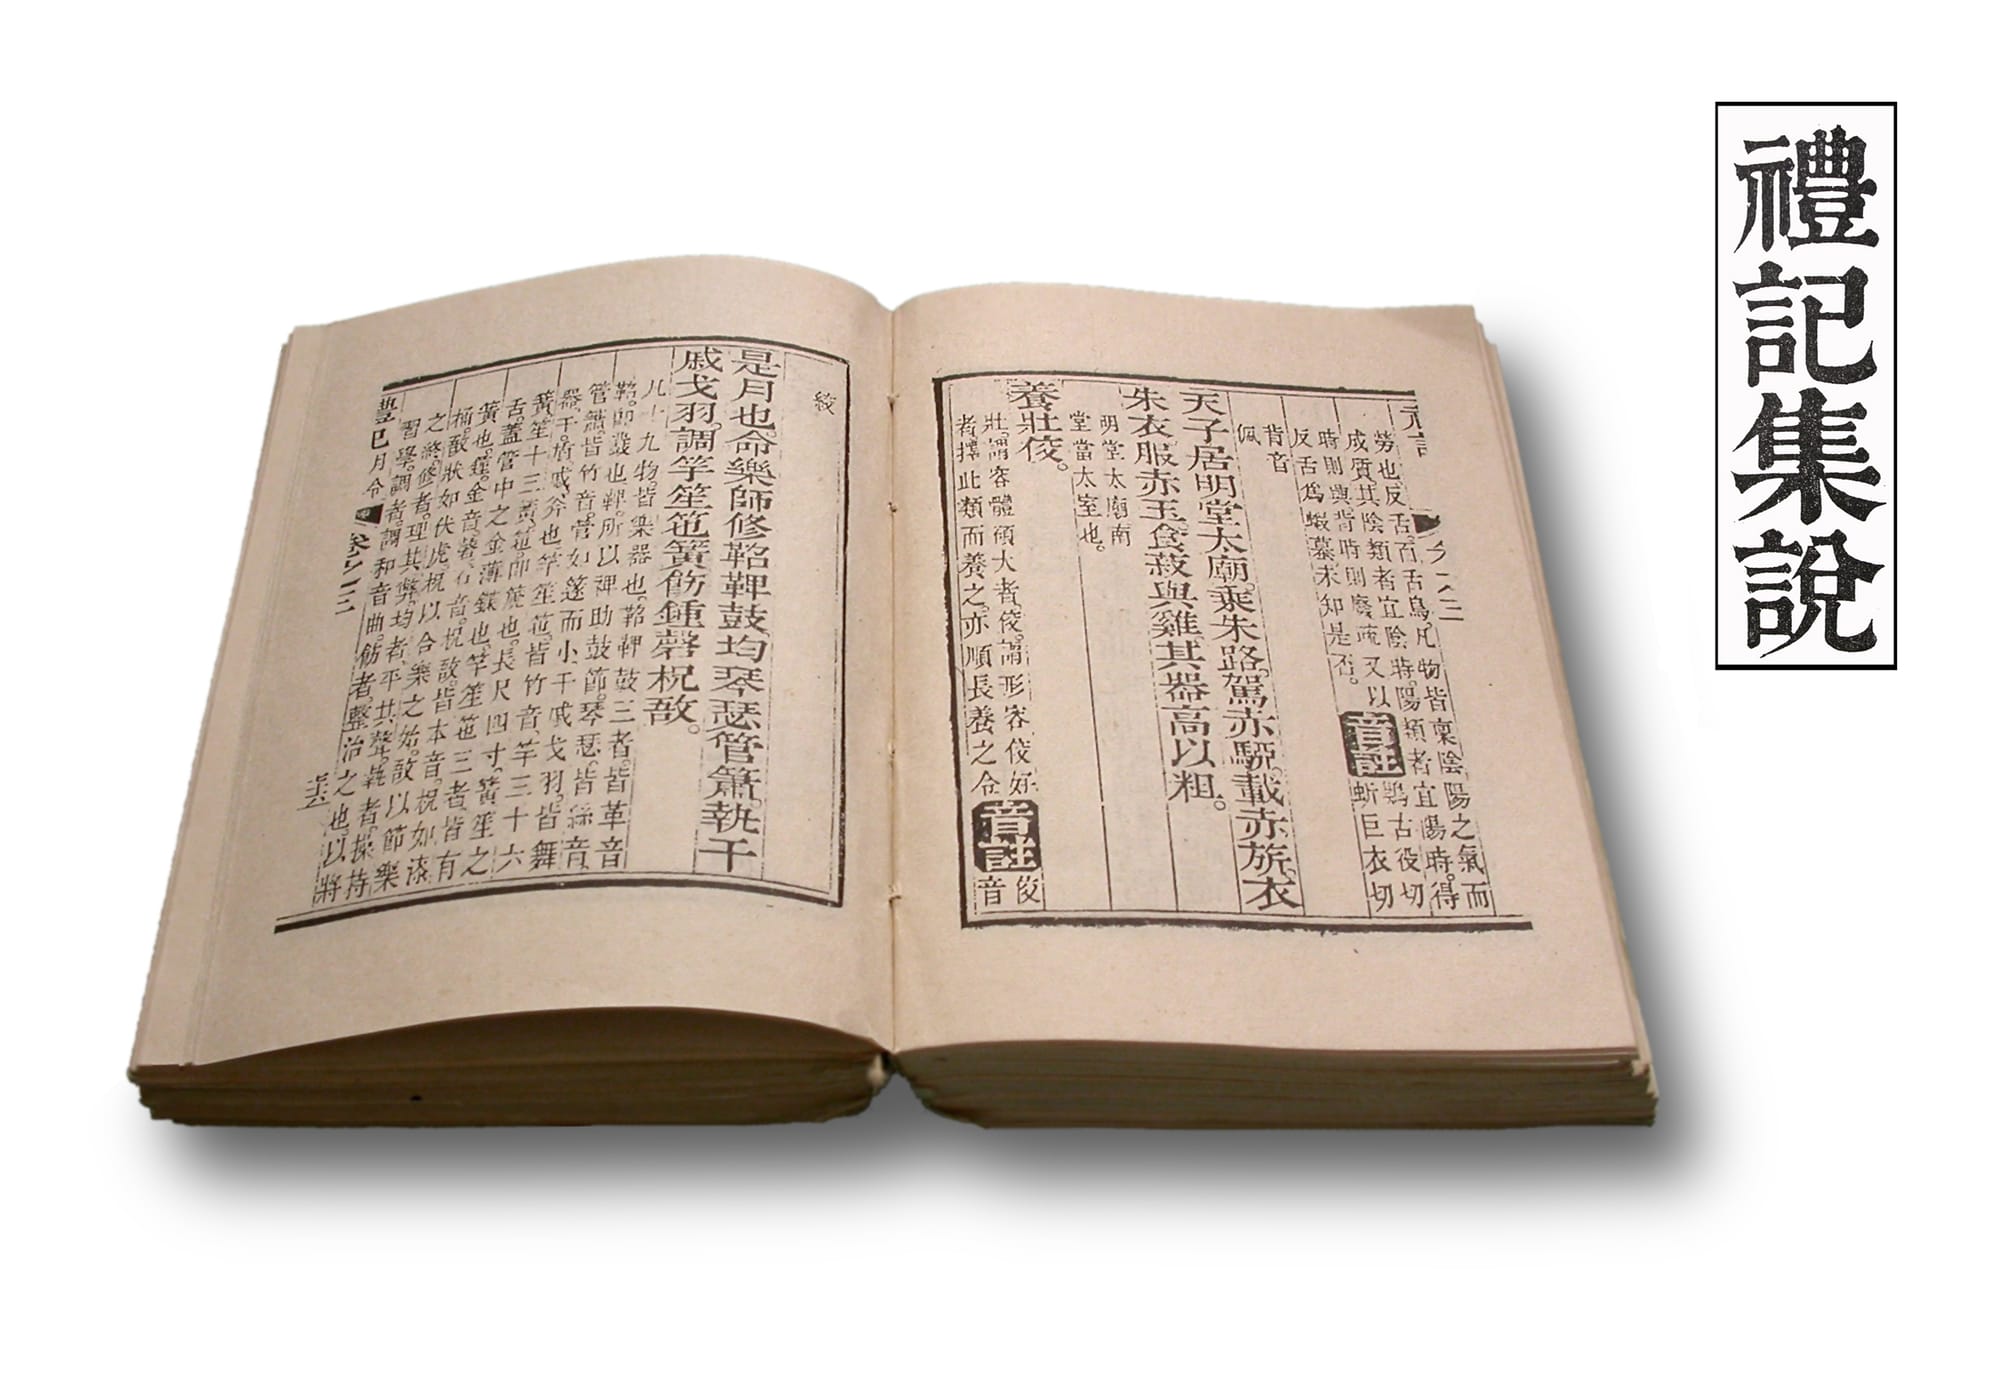 禮記集說
勞也反舌百舌鳥凡物皆稟陰陽之氣而
成質其陰類者宜陰時陽類者宜陽時得
時則興背時則廢疏又以
反舌爲蝦蟇未知是否。
音註
鶪古役切
蚈巨衣切
背音
佩
天子居明堂太廟乘朱路駕赤駵載赤旂衣
朱衣服赤玉食菽與雞其器高以粗。
明堂太廟南
堂當太室也。
養壯佼。
壯謂容體碩大者佼謂形容佼好
者擇此類而養之亦順長養之令
音註
佼
音
絞
是月也命樂師修鞀鞞鼓均琴瑟管簫執干
戚戈羽調竽笙竾簧飭鍾磬柷敔。
凡十九物皆樂器也鞀鞞鼓三者皆革音
鞀卽鼗也鞞所以裨助鼓節琴瑟皆絲音
管簫皆竹音管如篴而小干戚戈羽皆舞
器干盾戚斧也竽笙竾皆竹音竽三十六
簧笙十三簧竾卽篪也長尺四寸簧笙之
舌蓋管中之金薄鍱也竽笙竾三者皆有
簧也鍾金音磬石音柷敔皆木音柷如漆
桶敔狀如伏虎柷以合樂之始敔以節樂
之終修者理其弊均者平其聲執者操持
習學調者調和音曲飭者整治之也以將
禮記月令 卷之三